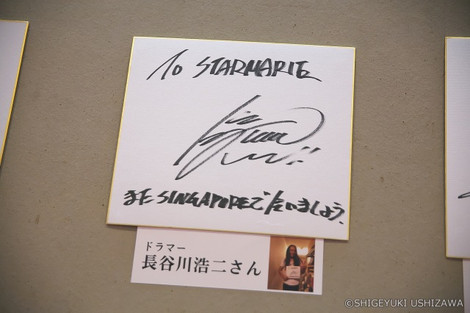 To STARMARIE
また SINGAPOREで会いましょう.
ドラマー
長谷川浩二さん
©SHIGEYUKI USHIZAWA